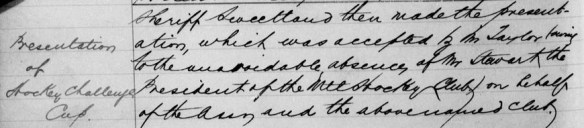 Sheriff Sweetland then made the present-
Presentation
ation, which was accepted by Mr Taylor (owing
of
to the unavoidable absence, of Mr Stewart the
Hockey Challenge
President of the Vic Hockey Club) on behalf
Cup.
of the Assn, and the above named club.